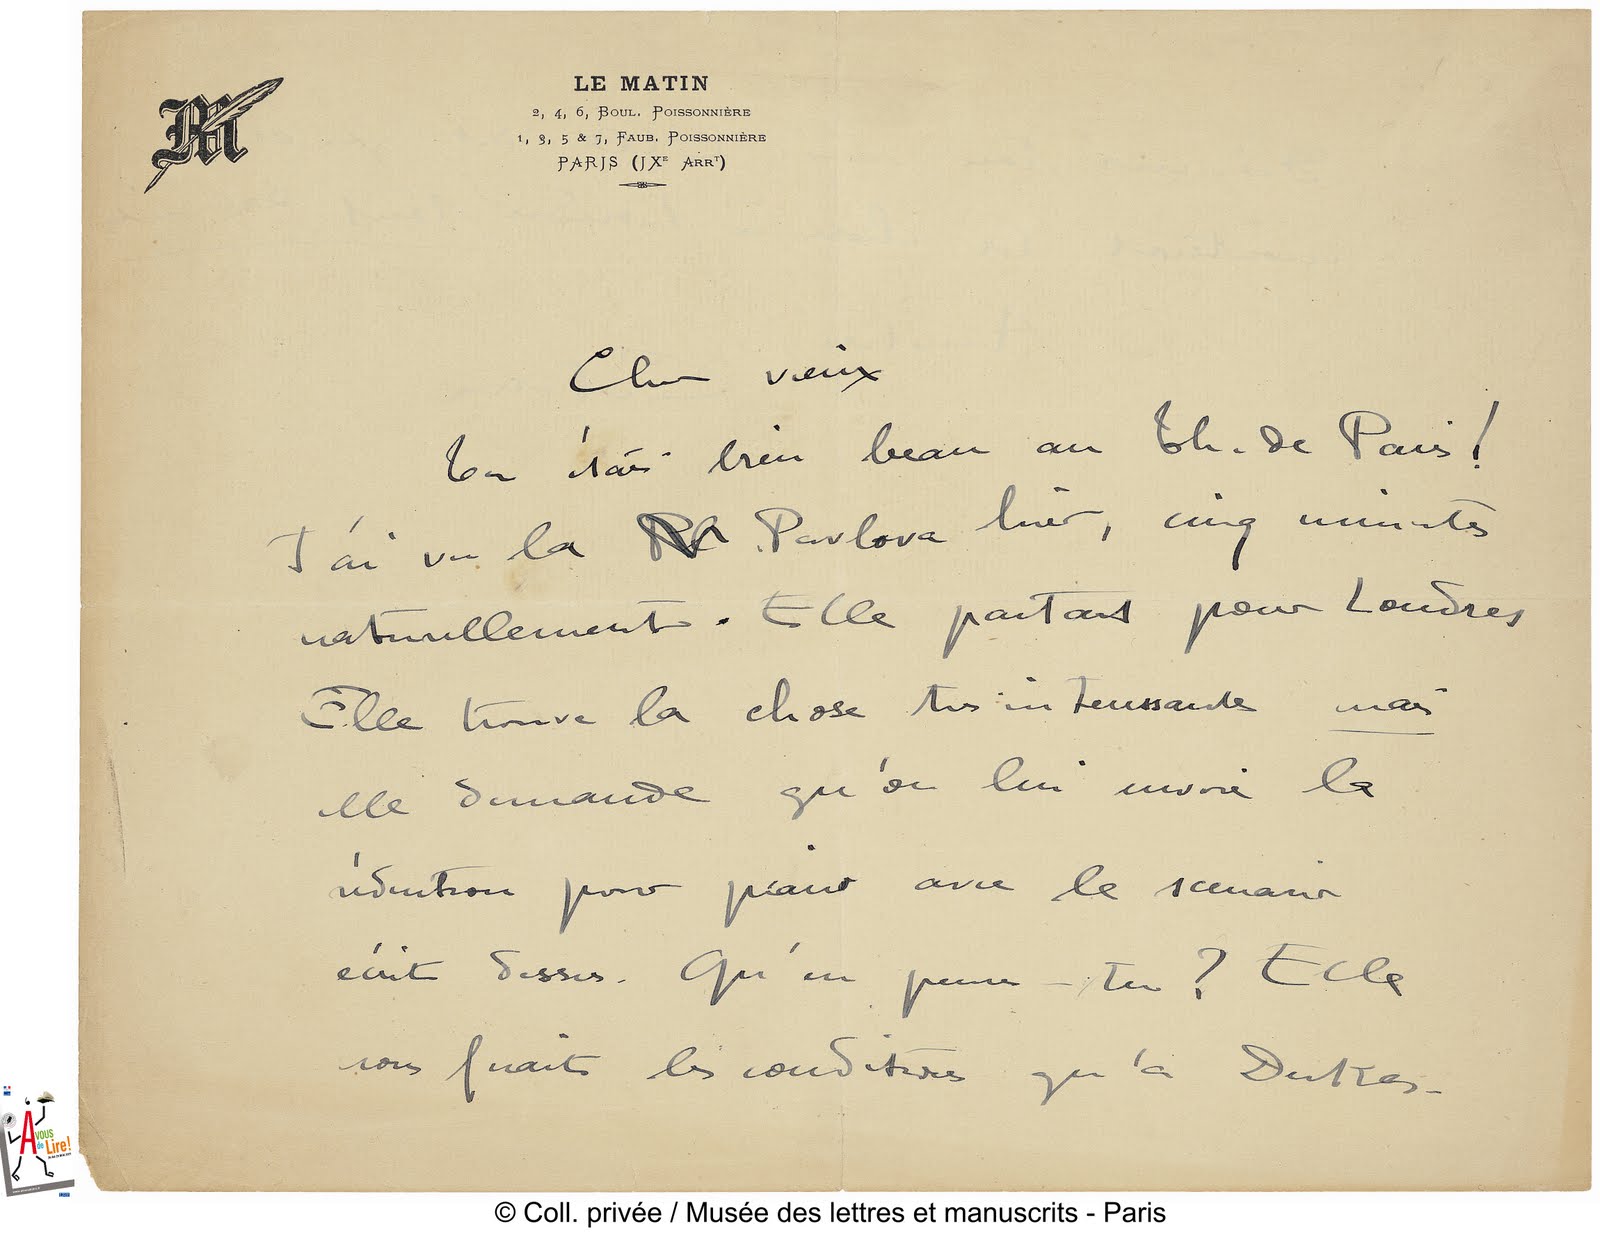 LE MATIN
2, 4, 6, BOUL. POISSONNIÈRE
1, 3, 5 & 7, FAUB. POISSONNIÈRE
PARIS (IXE ARRT)
Cher vieux
Tu étais bien beau au Th. de Paris!
J'ai vu la Pavlova hier, cinq minutes
naturellement. Elle partait pour Londres
Elle trouve la chose très intéressante mais
elle demande qu'on lui envoie la
réduction pour piano avec le scenario
écrit dessus. Qu'en penses-tu? Elle
vous ferait les conditions qu'à Dukas-
A VOUS de Lire!
© Coll. privée / Musée des lettres et manuscrits - Paris